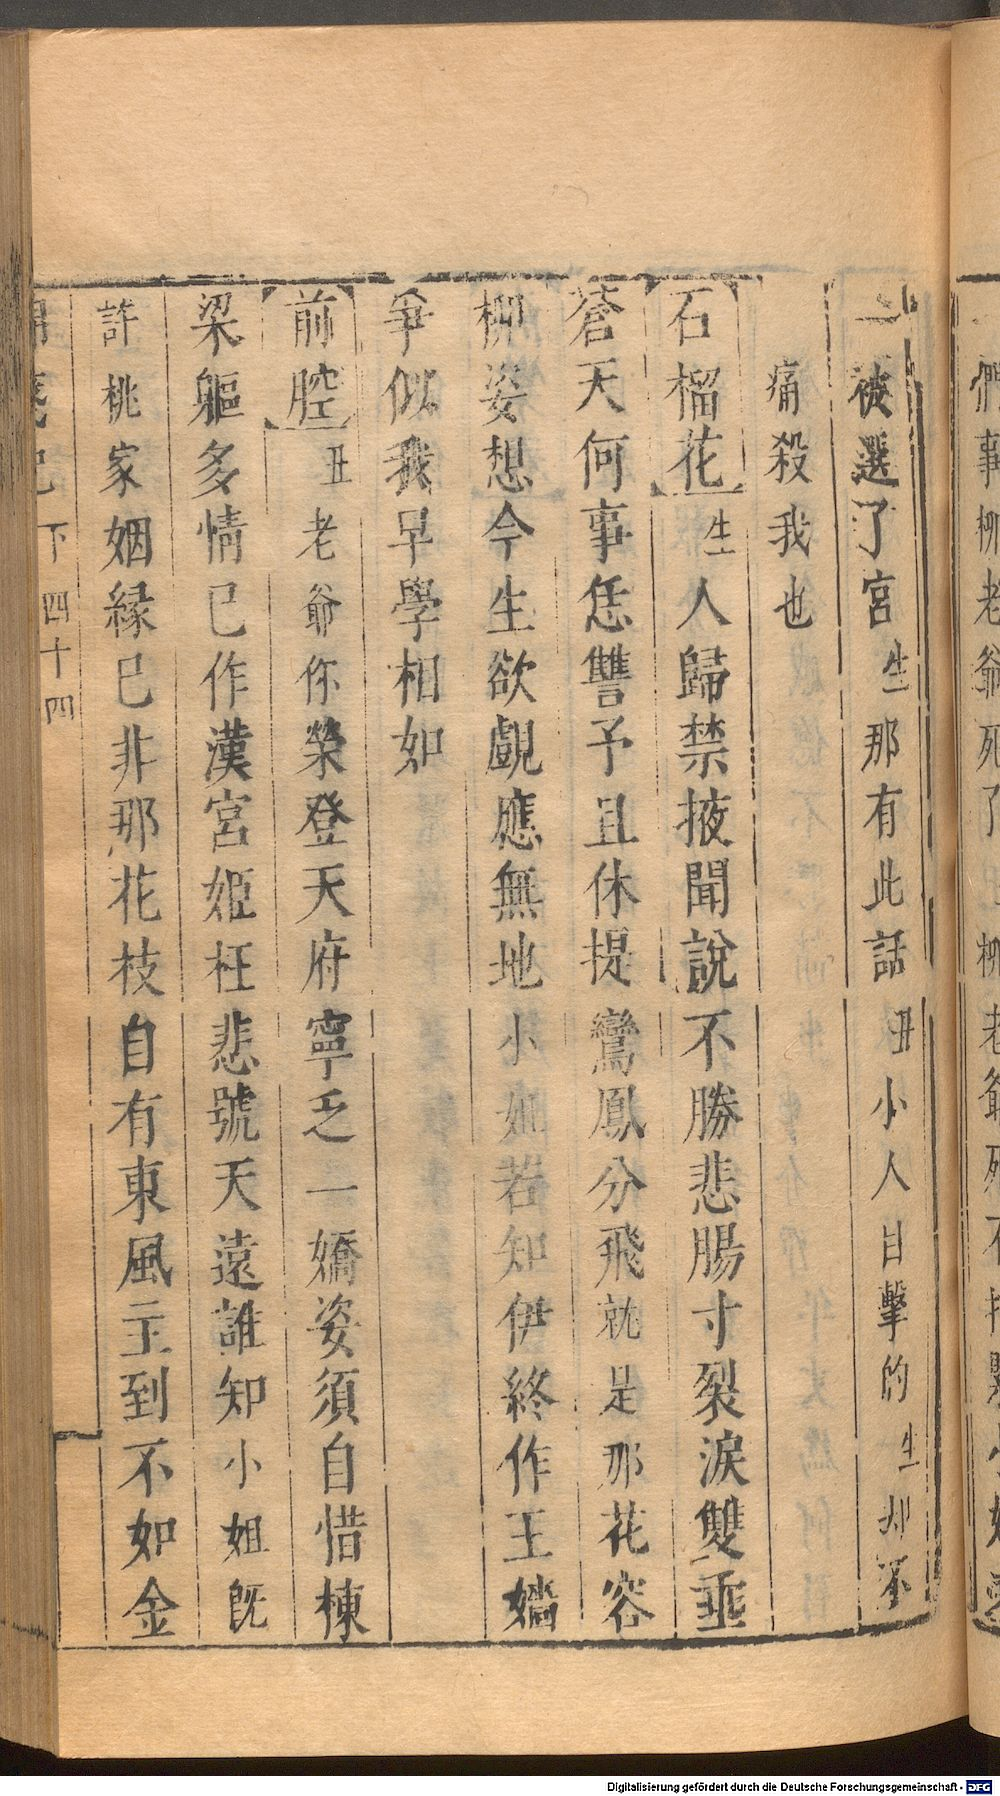 們事柳老爺死了
柳老爺死不
二被選了宮生那有此話丑小人目擊的生却不
痛殺我也
石榴花生人歸禁掖聞說不勝悲腸寸裂淚雙垂
蒼天何事恁讐予且休提鸞鳳分飛就是那花容
柳姿想今生欲覷應無地小姐若知伊終作王嬙
爭似我早學相如
前腔丑老爺你榮登天府寧乏一嬌姿須自惜棟
梁軀多情已作漢宮姬枉悲號天遠誰知小姐既
許桃家姻緣已非那花枝自有東風主到不如金
下 四十四
Digitalisierung gefördert durch die Deutsche Forschungsgemeinschaft - DFG